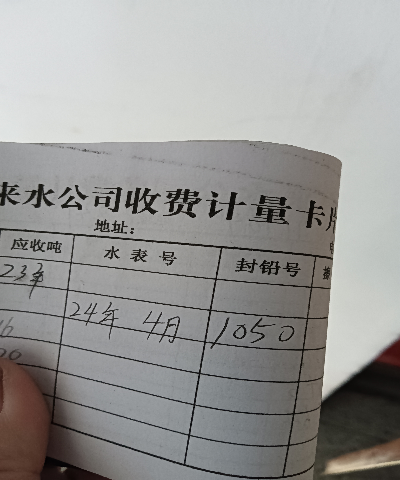 来水公司收费计量卡片
地址：
应收吨 水表号 封铅号
23年
24年 4月 1050